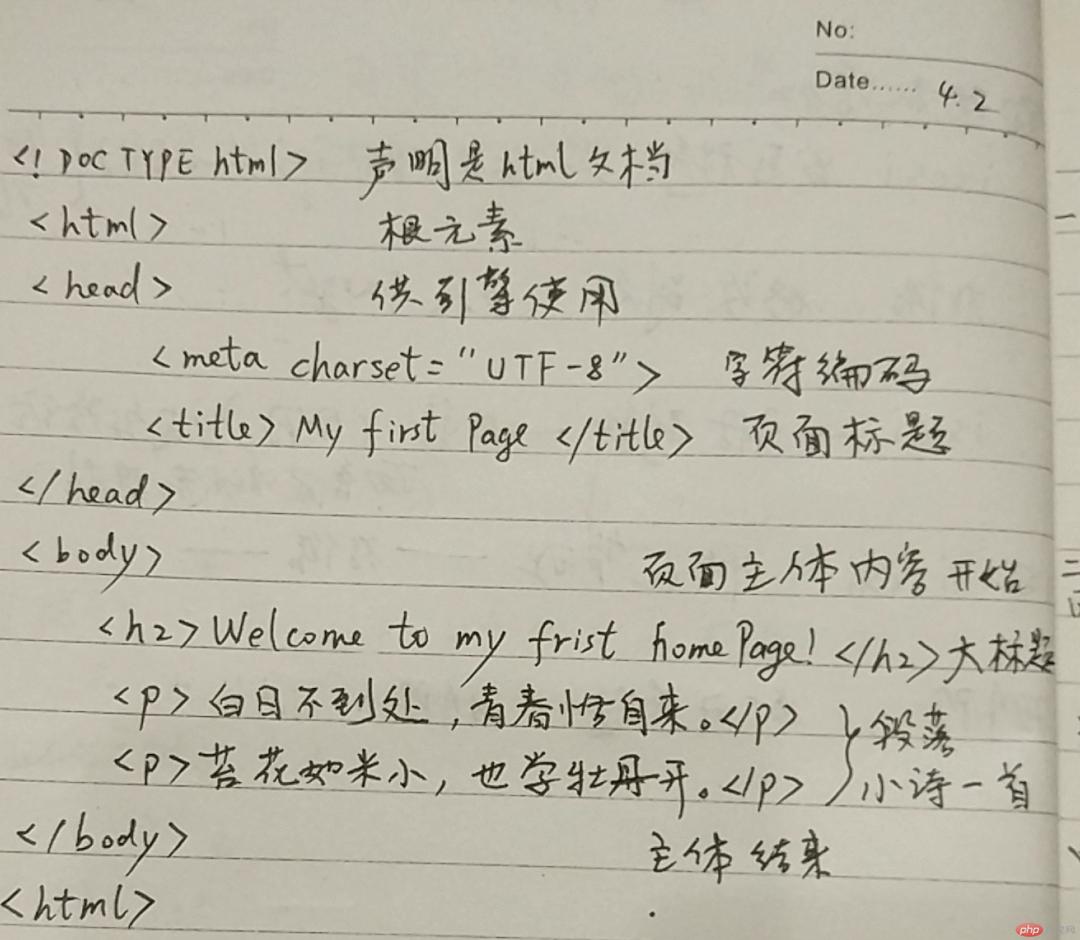 No:
Date...... 4.2
<! DOCTYPE html> 声明是html文档
<html> 根元素
<head> 供引擎使用
<meta charset="UTF-8"> 字符编码
<title> My first Page </title> 页面标题
</head>
<body> 页面主体内容开始
<h2> Welcome to my frist home Page! </h2> 大标题
<p> 白日不到处，青春恰自来。</p> 段落
<p> 苔花如米小，也学牡丹开。</p> 小诗一首
</body> 主体结束
<html>
php